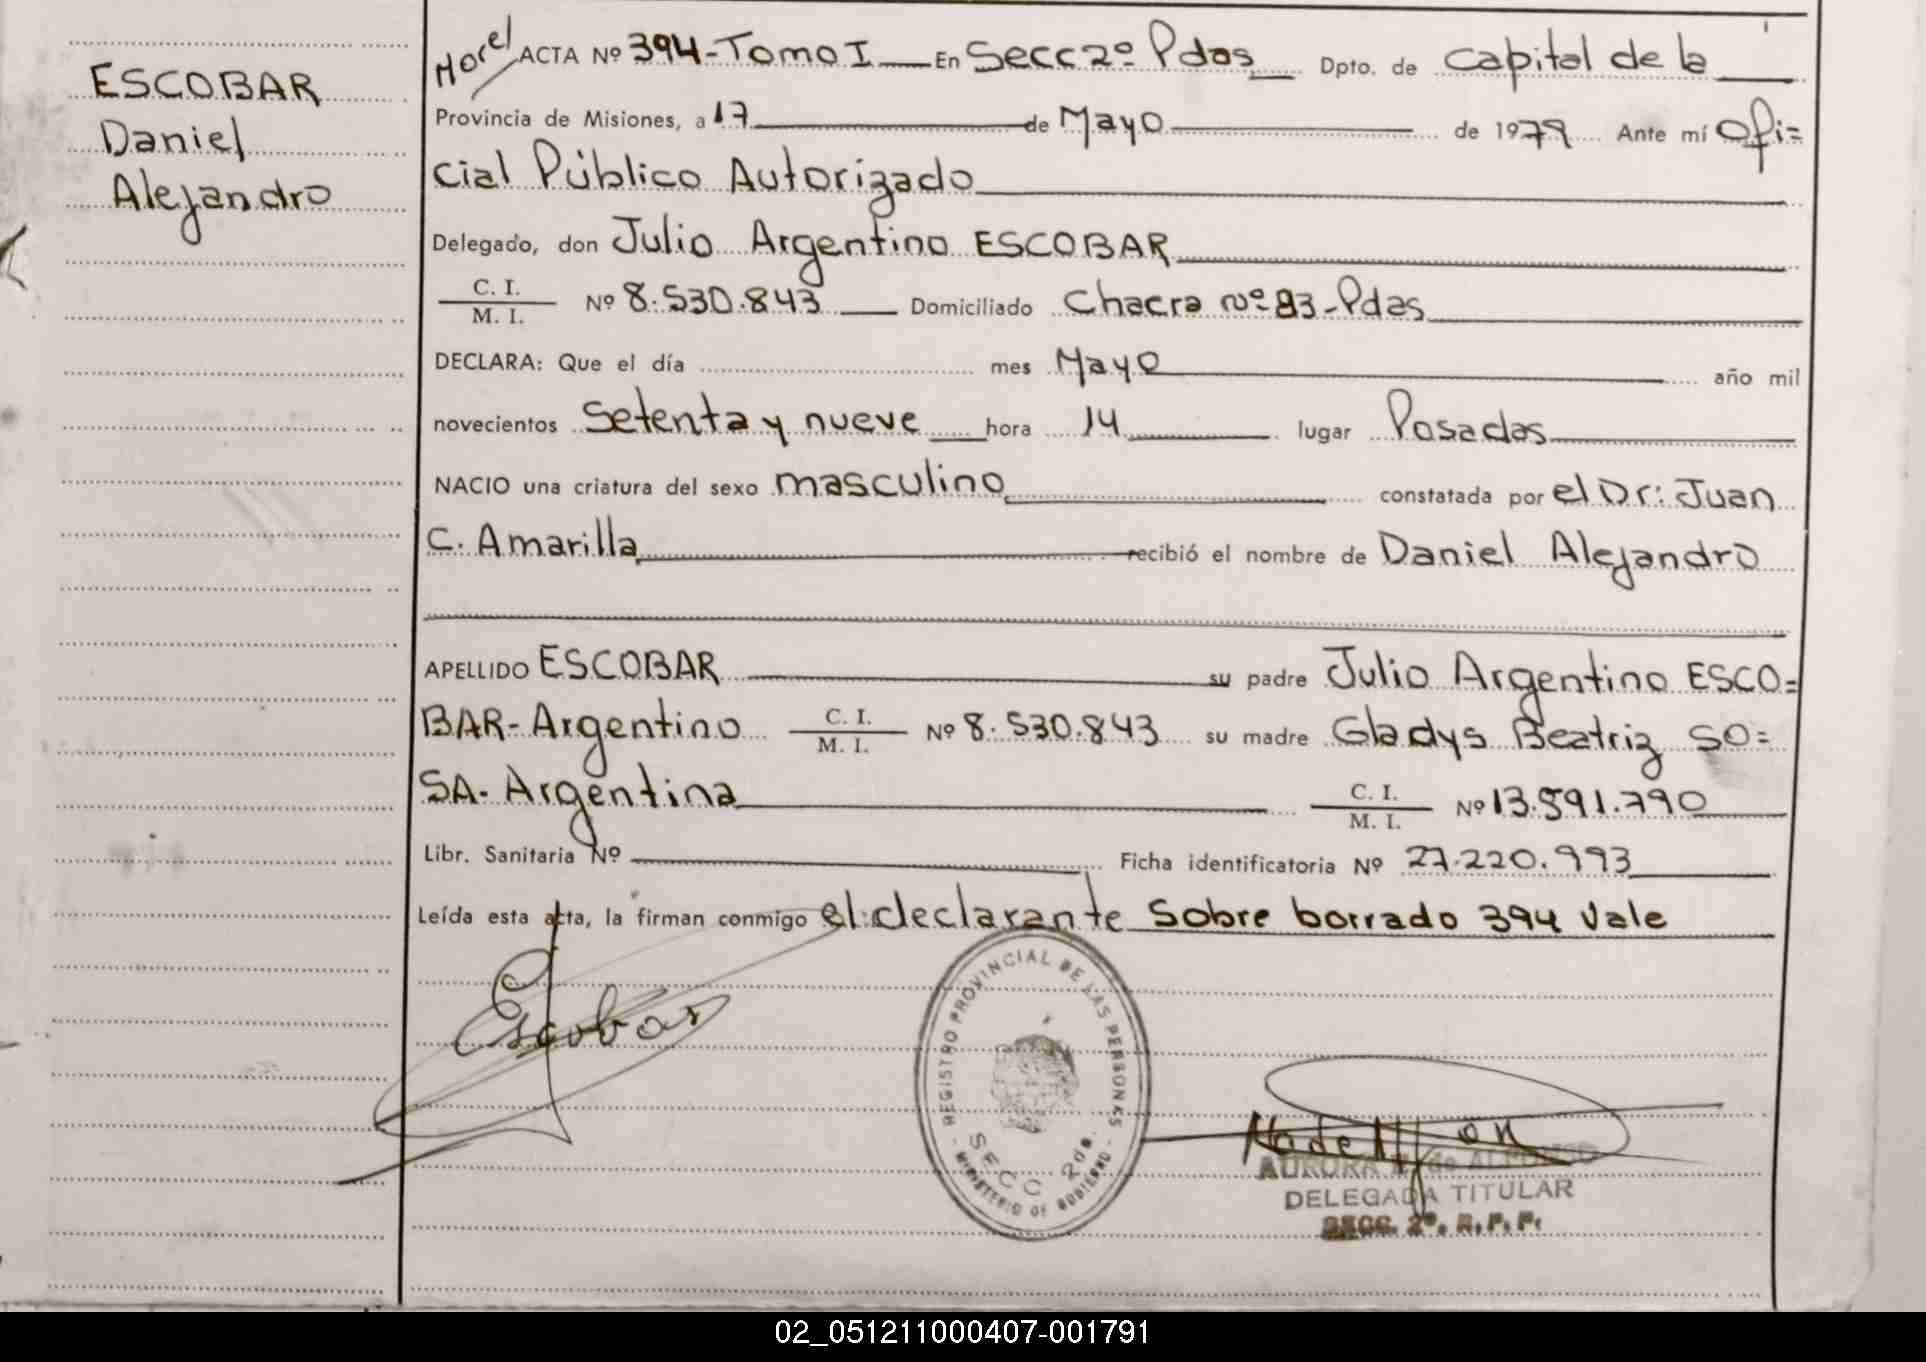 ESCOBAR
Daniel
Alejandro
ACTA Nº 394-Tomo I En Secc 2º Pdas Dpto. de Capital de la
Provincia de Misiones, a 17 de Mayo de 1979 Ante mí Ofi=
cial Público Autorizado
Delegado, don Julio Argentino ESCOBAR
C. I.
M. I. Nº 8.530.843 Domiciliado Chacra nº 83-Pdas
DECLARA: Que el día mes Mayo año mil
novecientos Setenta y nueve hora 14 lugar Posadas
NACIO una criatura del sexo masculino constatada por el Dr: Juan
C. Amarilla recibió el nombre de Daniel Alejandro
APELLIDO ESCOBAR su padre Julio Argentino ESCO=
BAR-Argentino C. I. M. I. Nº 8.530.843 su madre Gladys Beatriz SO=
SA-Argentina C. I. M. I. Nº 13.591.790
Libr. Sanitaria Nº Ficha identificatoria Nº 27.220.993
Leída esta acta, la firman conmigo el declarante Sobre borrado 394 Vale
Escobar
REGISTRO PROVINCIAL DE LAS PERSONAS
SECC 2da.
MINISTERIO DE GOBIERNO
AURORA de ALFONSO
DELEGADA TITULAR
SECC. 2ª. R. P. P.
02_051211000407-001791